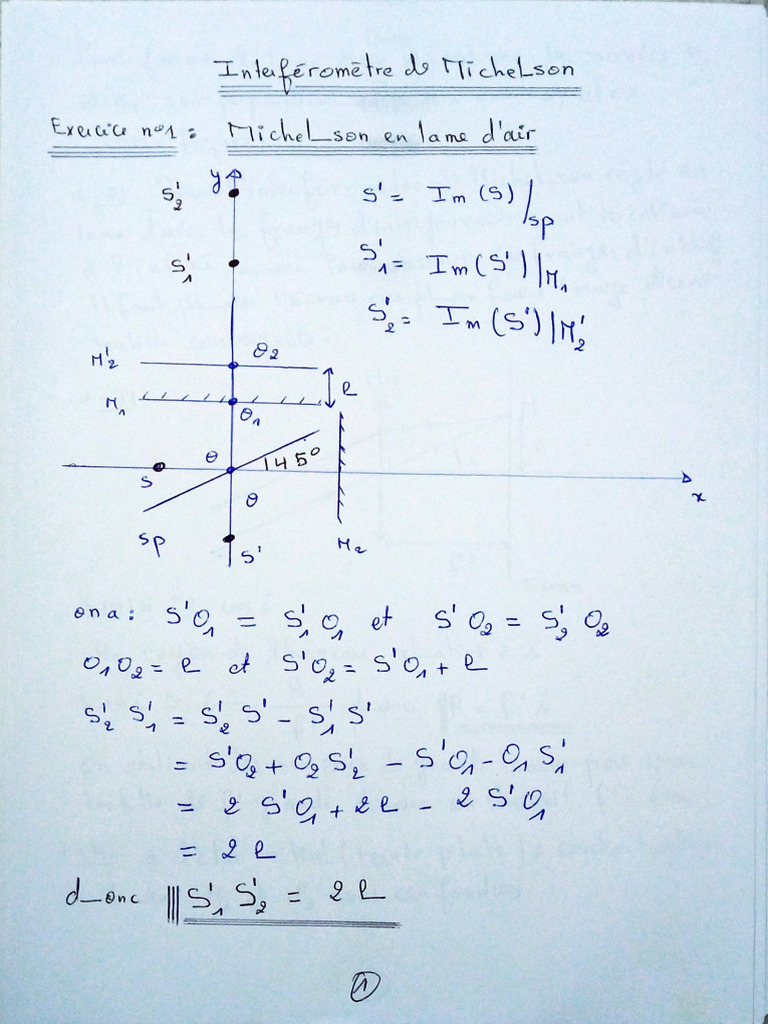 Interféromètre de Michelson
Exercice n°1 : Michelson en lame d'air
y
S'2
S'1
S' = Im (S) | sp
S'1 = Im (S') | M1
S'2 = Im (S') | M'2
M'2
O2
e
M1
O1
O
45°
S
O
x
sp
S'
M2
on a : S'O1 = S'1 O1 et S'O2 = S'2 O2
O1O2 = e et S'O2 = S'O1 + e
S'2 S'1 = S'2 S' - S'1 S'
= S'O2 + O2 S'2 - S'O1 - O1 S'1
= 2 S'O1 + 2e - 2 S'O1
= 2 e
donc S'1 S'2 = 2 e
1